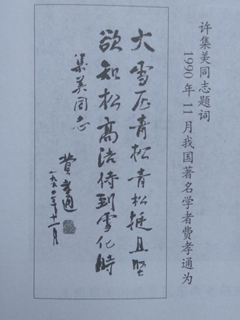 1990年11月我国著名学者费孝通为
许集美同志题词
大雪压青松青松挺且坚
欲知松高洁待到雪化時
集美同志
費孝通
一九九〇年十一月